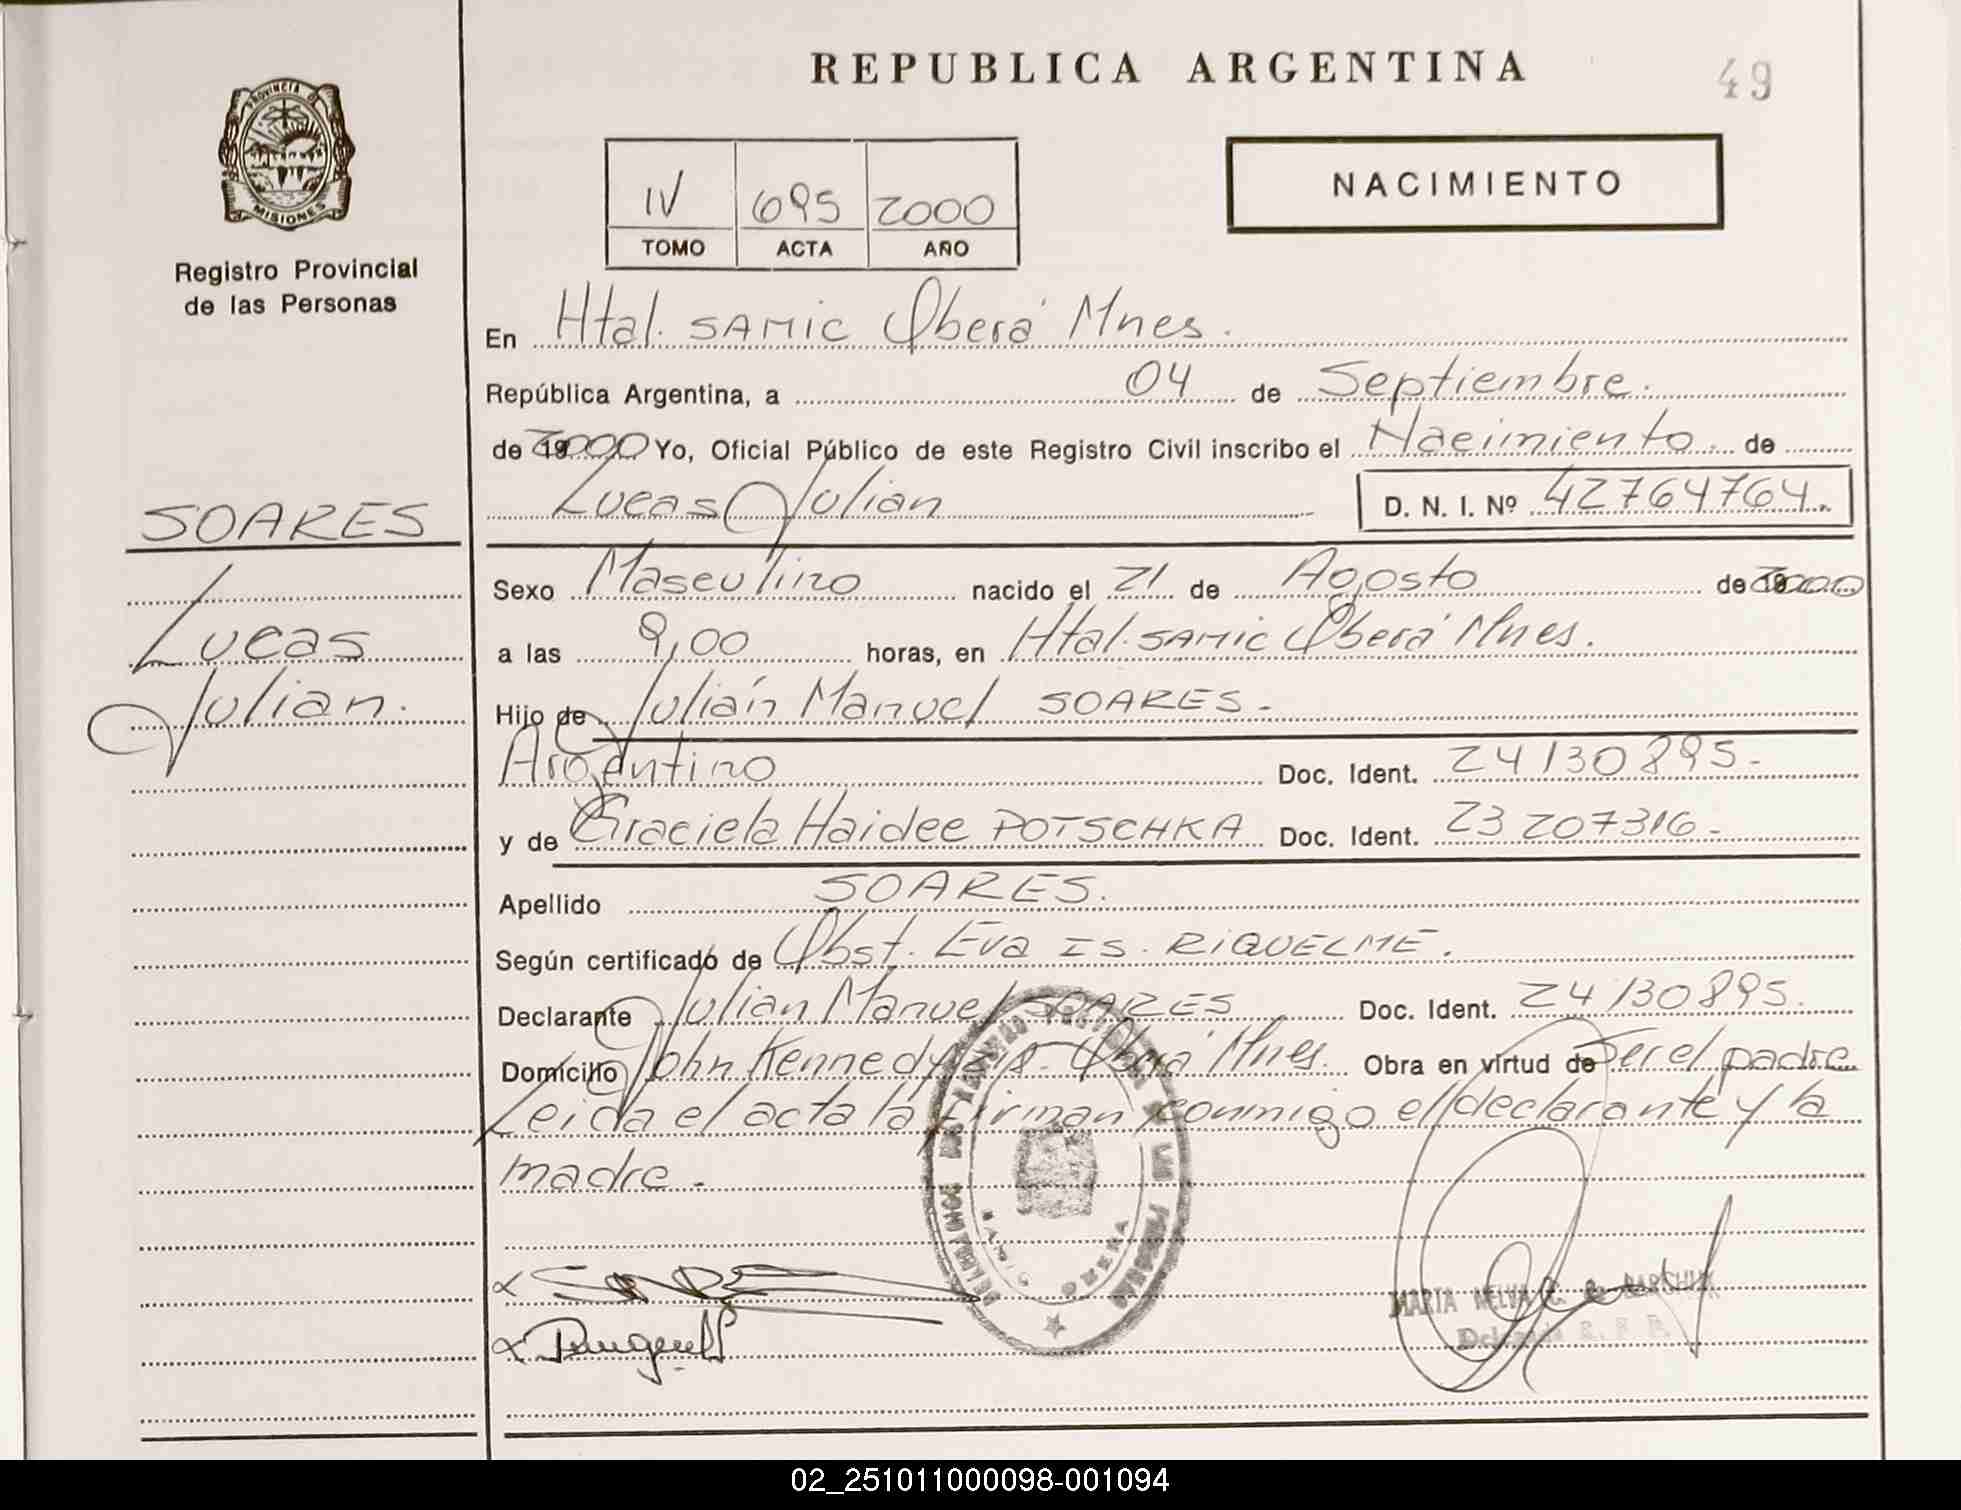 REPUBLICA ARGENTINA
49
PROVINCIA DE
MISIONES
Registro Provincial
de las Personas
IV 695 2000
TOMO ACTA AÑO
NACIMIENTO
En Htal. SAMIC Oberá Mnes.
República Argentina, a 04 de Septiembre.
de 2000 Yo, Oficial Público de este Registro Civil inscribo el Nacimiento de
Lucas Julian D. N. I. Nº 42764764.
SOARES
Lucas
Julian.
Sexo Masculino nacido el 21 de Agosto de 2000
a las 9,00 horas, en Htal. SAMIC Oberá Mnes.
Hijo de Julián Manuel SOARES.
Argentino Doc. Ident. 24130895.
y de Graciela Haidee POTSCHKA Doc. Ident. 23207316.
Apellido SOARES.
Según certificado de Obst. Eva IS. RIQUELME.
Declarante Julian Manuel SOARES Doc. Ident. 24130895.
Domicilio John Kennedy Oberá Mnes. Obra en virtud de Ser el padre
Leida el acta la firman conmigo el declarante y la
madre.
OBERA
MARIA NELVA
02_251011000098-001094